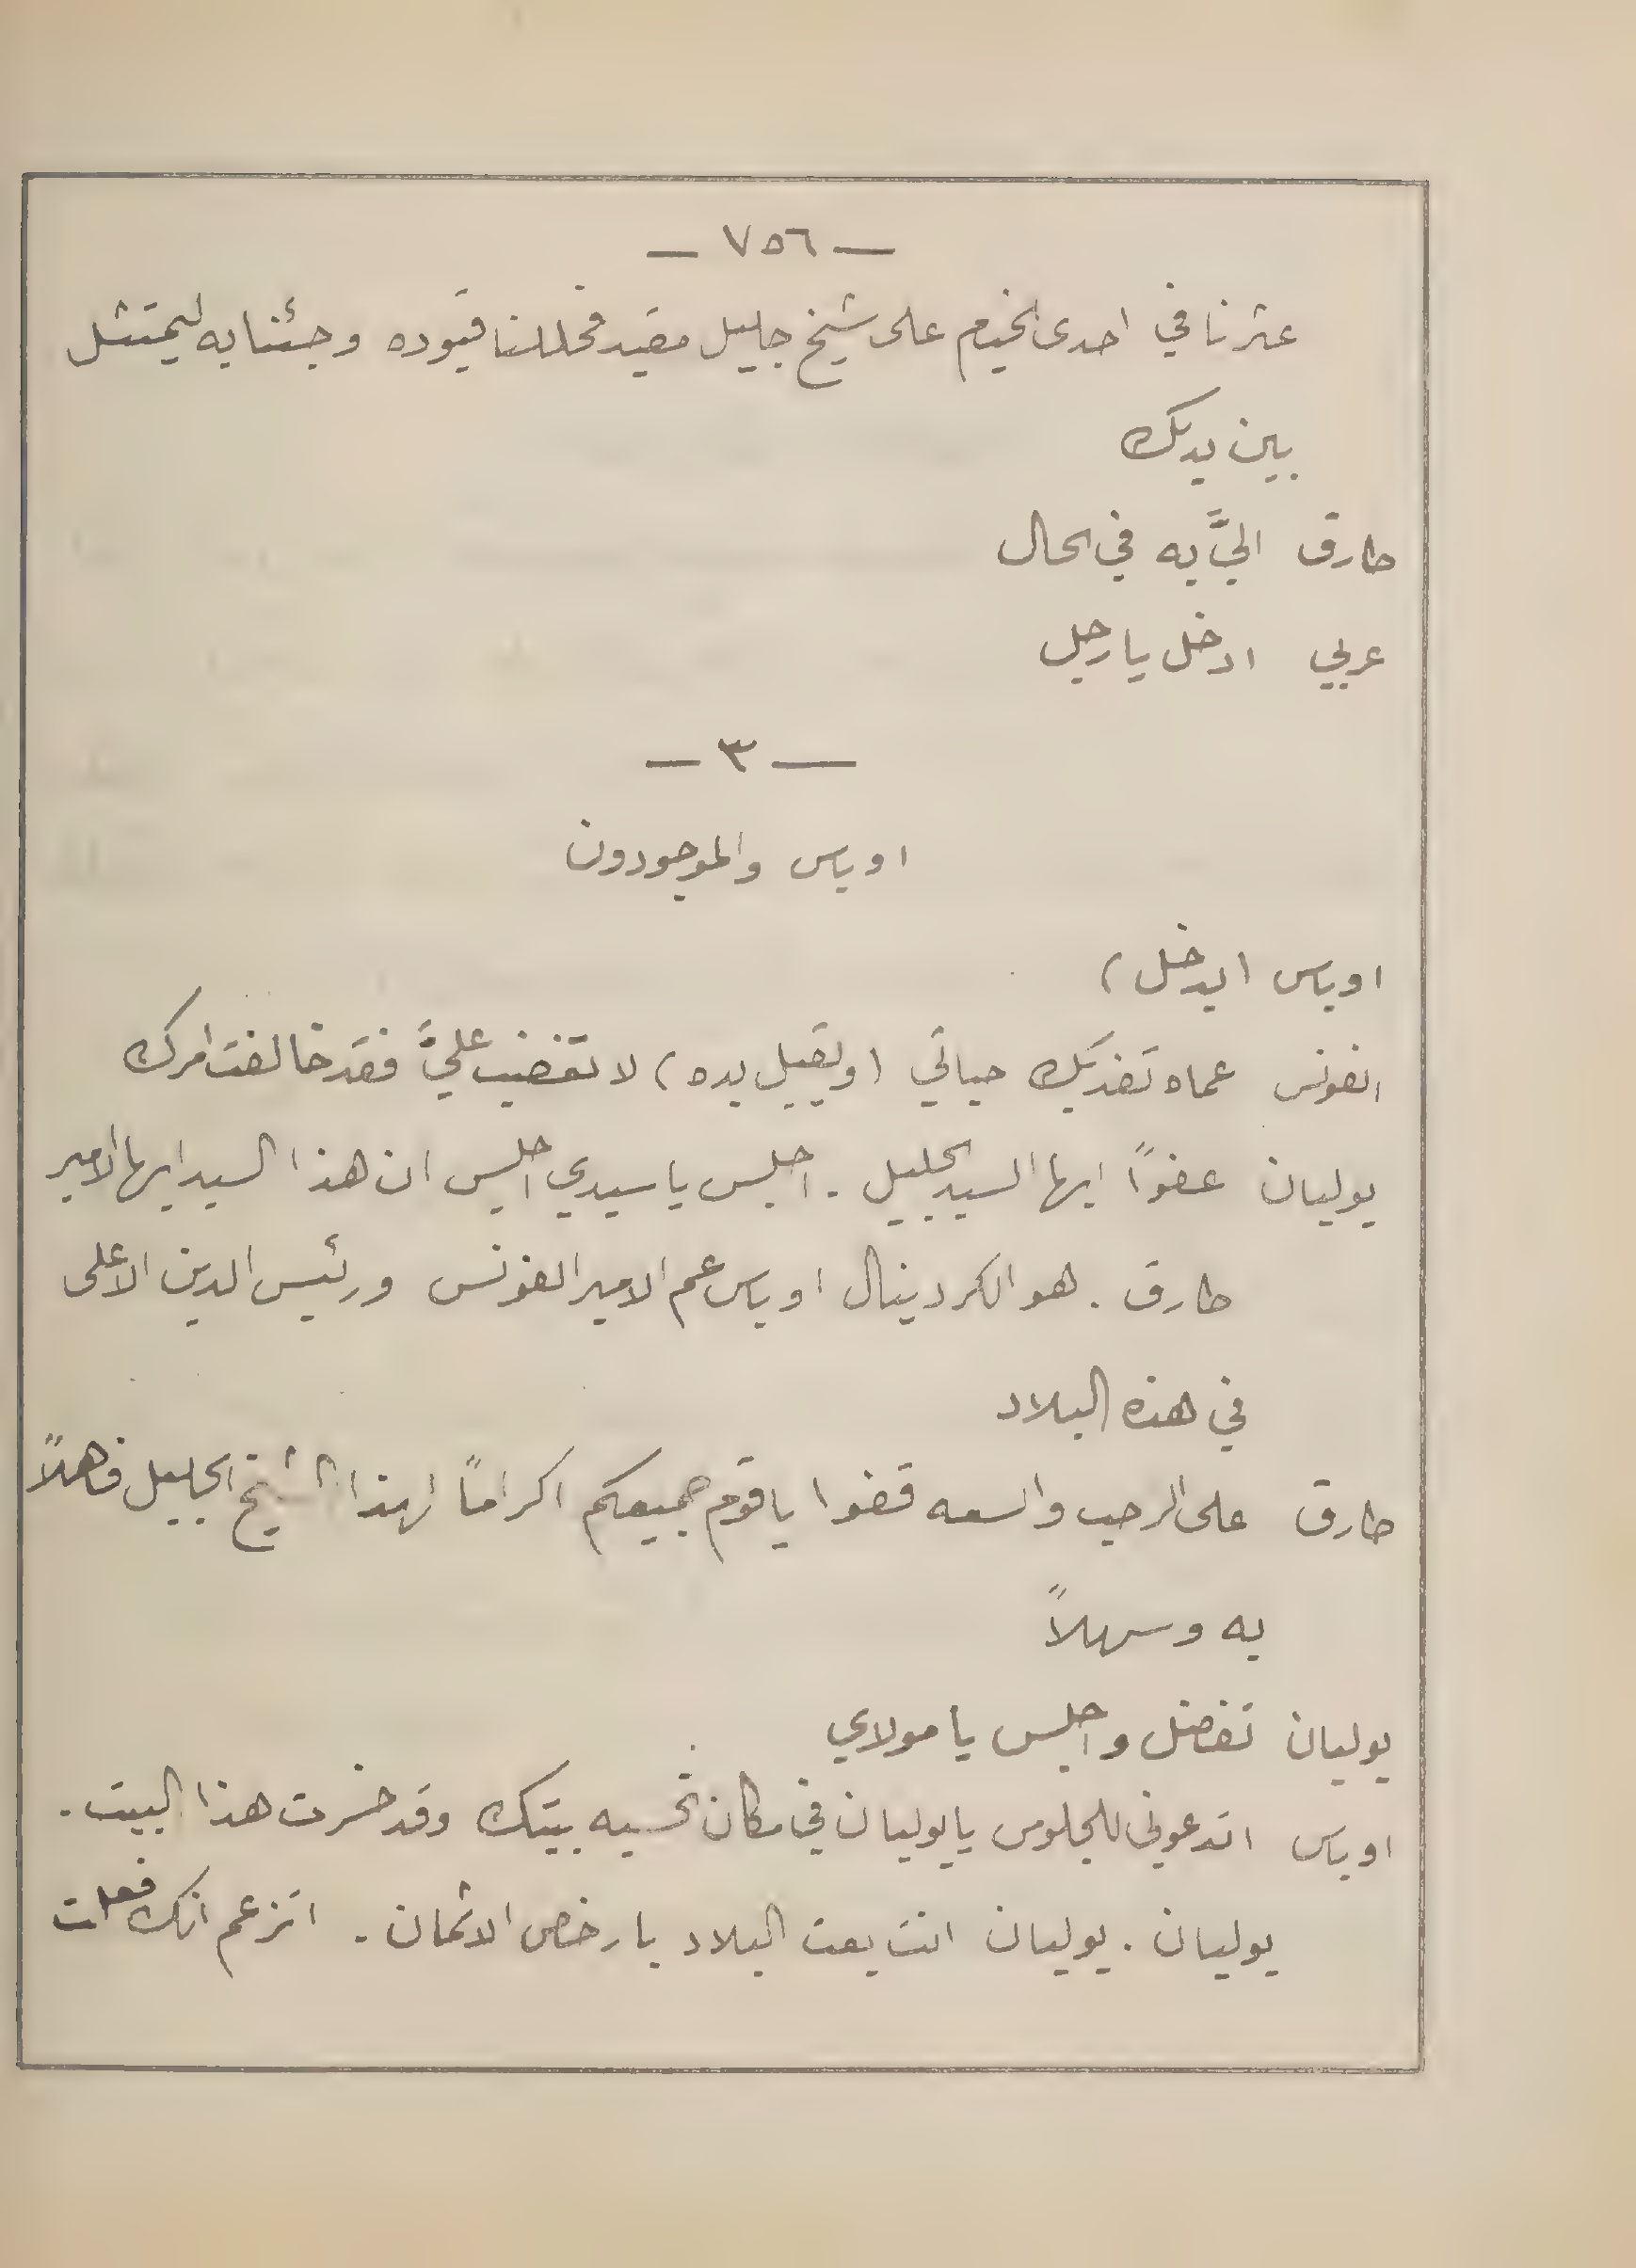 — ٧٥٦ —
عثرنا في احدى الخيم على شيخ جليل مقيد فحللنا قيوده وجئنا به ليمتثل
بين يديك
طارق اليَّ به في الحال
عربي ادخل يا رجل
— ٣ —
اوباس والموجودون
اوباس (يدخل)
الفونس عماه تفديك حياتي (ويقبل يده) لا تغضب عليَّ فقد خالفت امرك
يوليان عفوًا ايها السيد الجليل . اجلس يا سيدي اجلس ان هذا السيد ايها الامير
طارق . هو الكردينال اوباس عم الامير الفونس ورئيس الدين الاعلى
في هذه البلاد
طارق على الرحب والسعه قفوا يا قوم جميعكم اكرامًا لهذا الشيخ الجليل فاهلاً
به وسهلاً
يوليان تفضل واجلس يا مولاي
اوباس اتدعوني للجلوس يا يوليان في مكان تحسبه بيتك وقد خسرت هذا البيت .
يوليان . يوليان انت بعت البلاد بارخص الاثمان . اتزعم انك فعلت